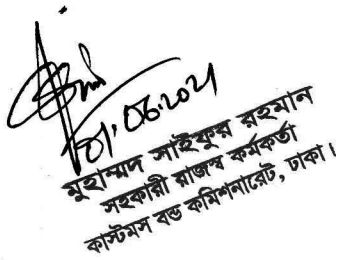 01.06.2021
মুহাম্মদ সাইফুর রহমান
সহকারী রাজস্ব কর্মকর্তা
কাস্টমস বন্ড কমিশনারেট, ঢাকা।